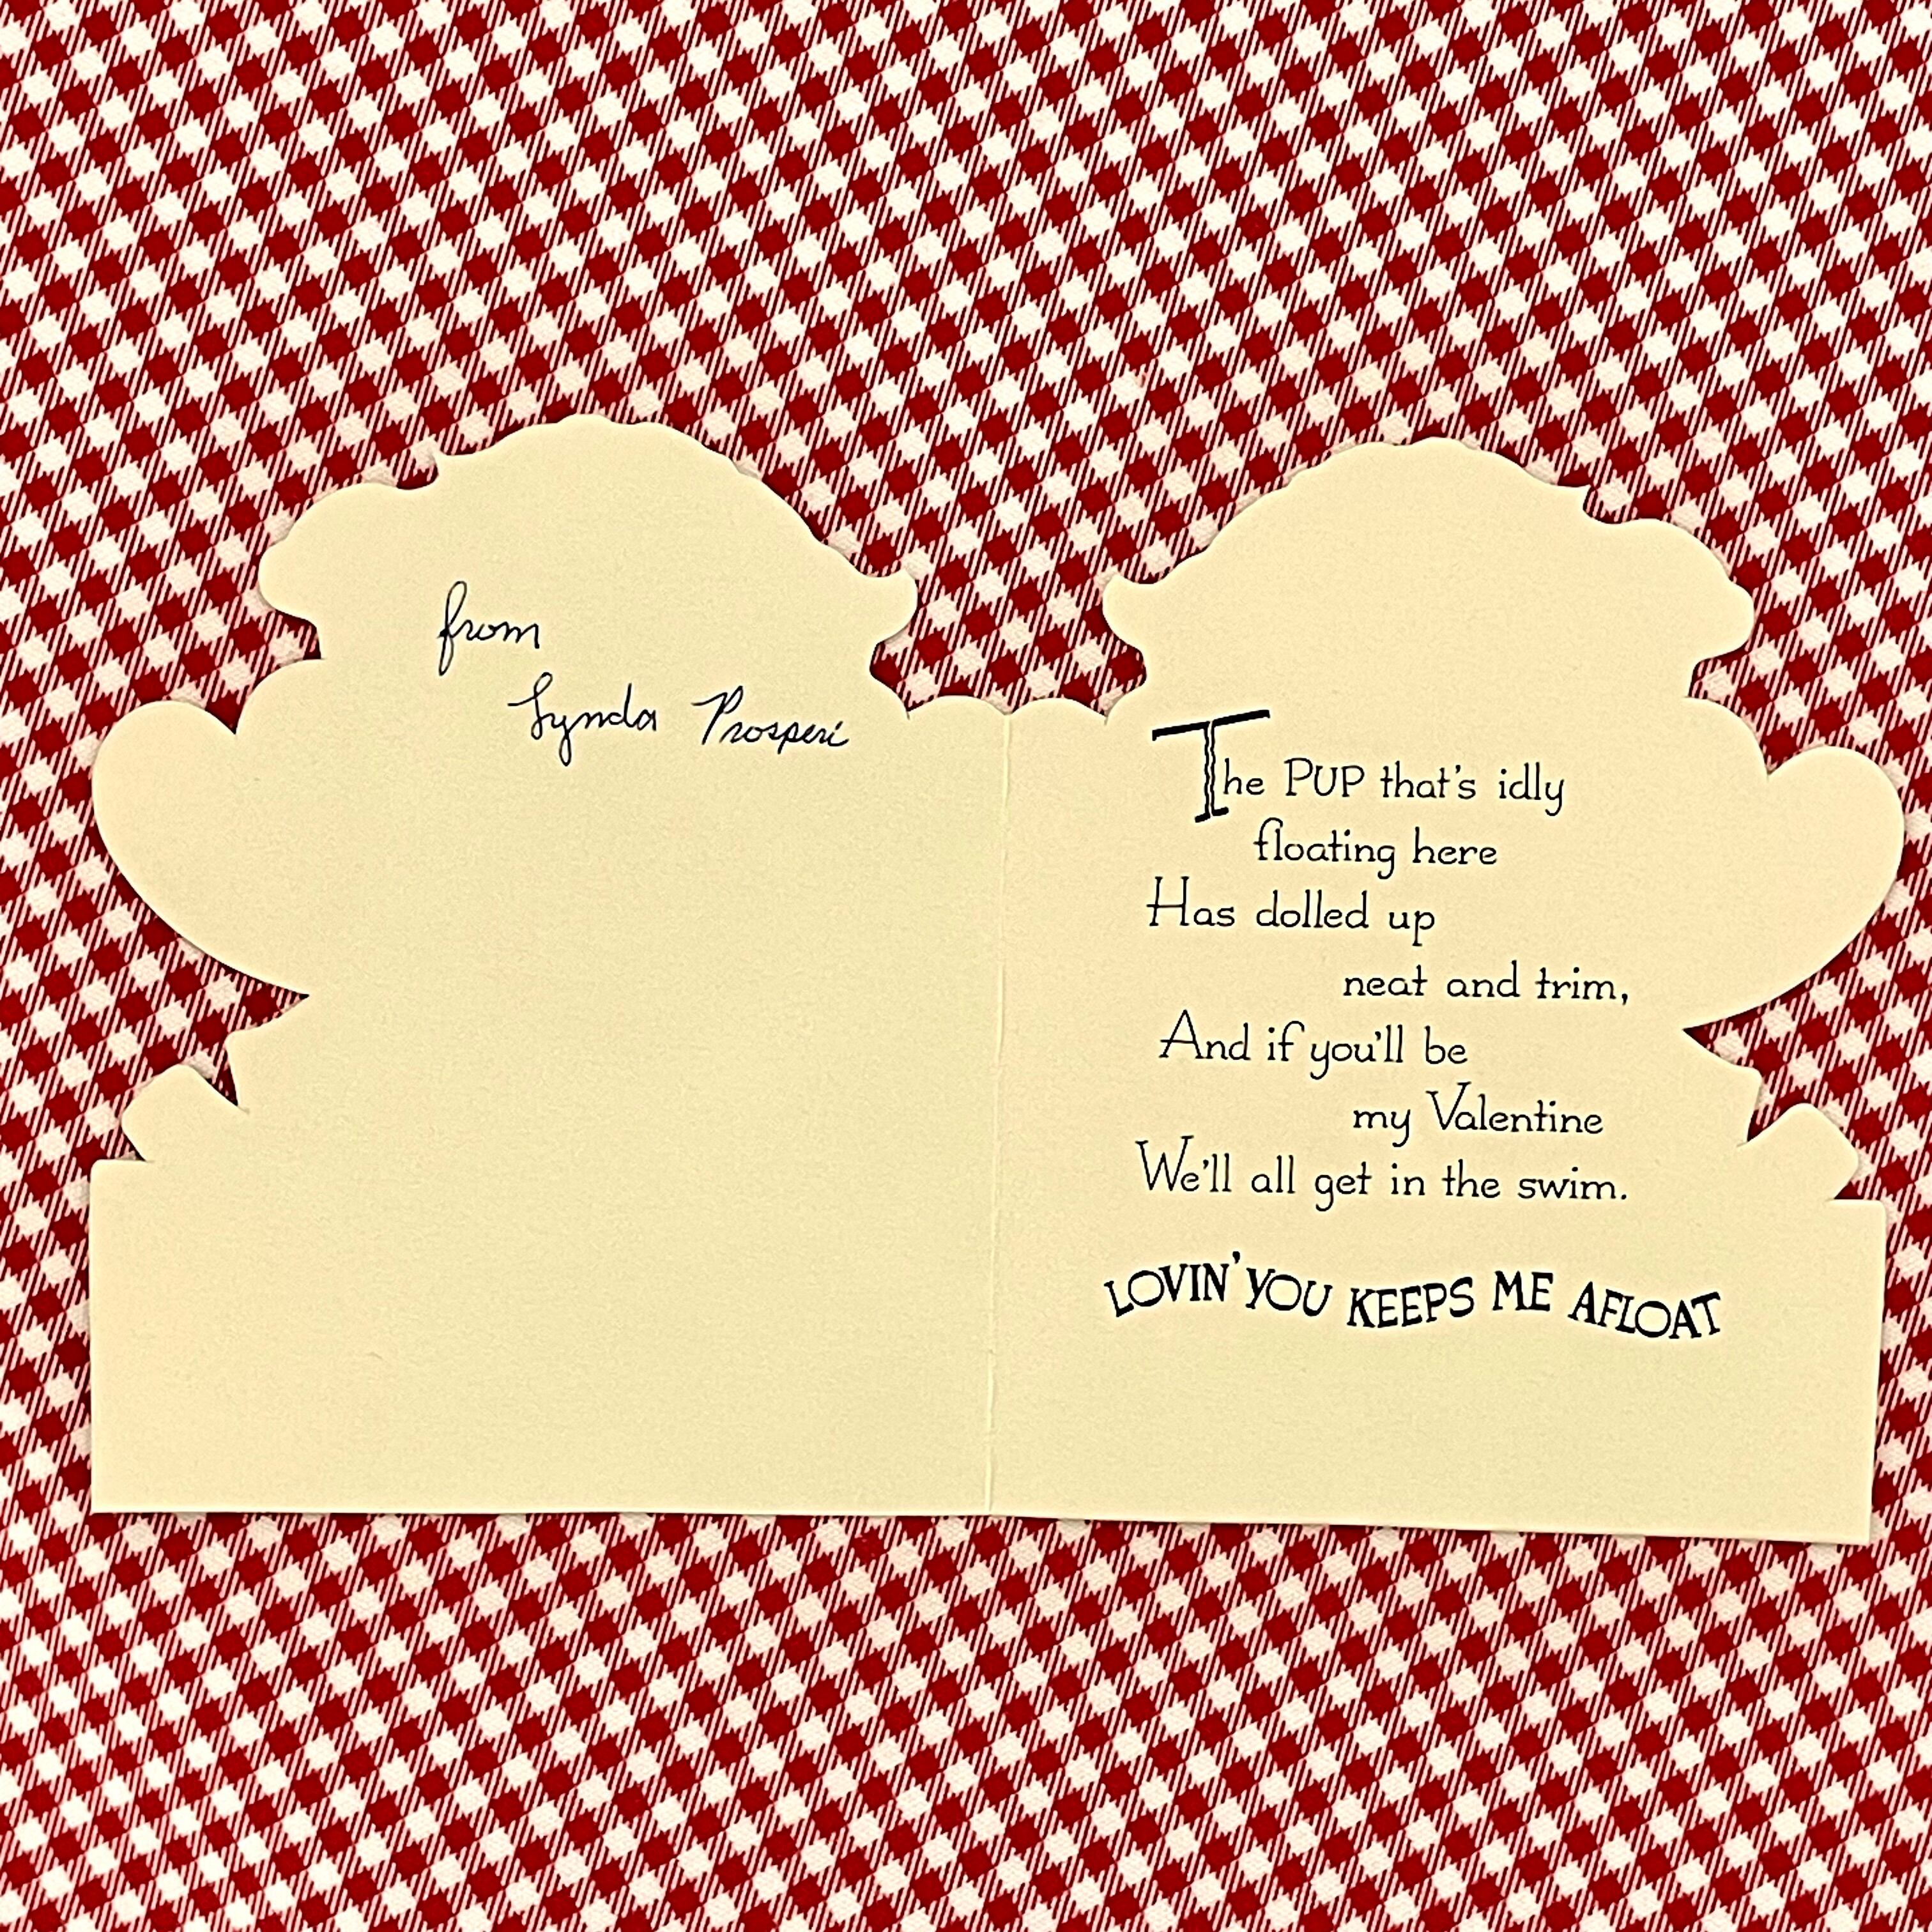 from
Lynda Prosperi
The PUP that's idly
floating here
Has dolled up
neat and trim,
And if you'll be
my Valentine
We'll all get in the swim.
LOVIN' YOU KEEPS ME AFLOAT